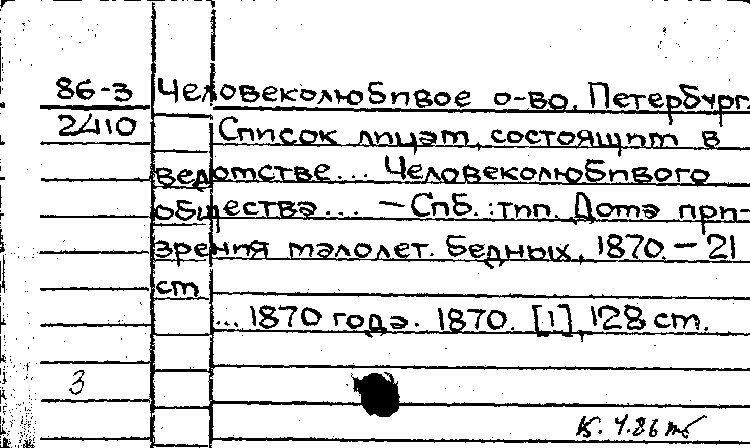 86-3 Человеколюбивое о-во. Петербург.
2410 Список лицам, состоящим в
ведомстве... Человеколюбивого
общества... – Спб.: тип. Дома при-
зрения малолет. бедных, 1870. – 21
см
... 1870 года. 1870. [1], 128 ст.
3